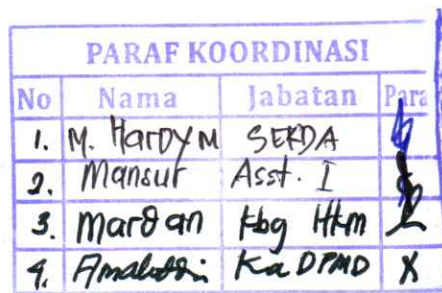 PARAF KOORDINASI
No Nama Jabatan Para
1. M. HARDY M SEKDA
2. Mansur Asst. I
3. Mardan Kbg Hkm
4. Amaluddin Ka DPMD